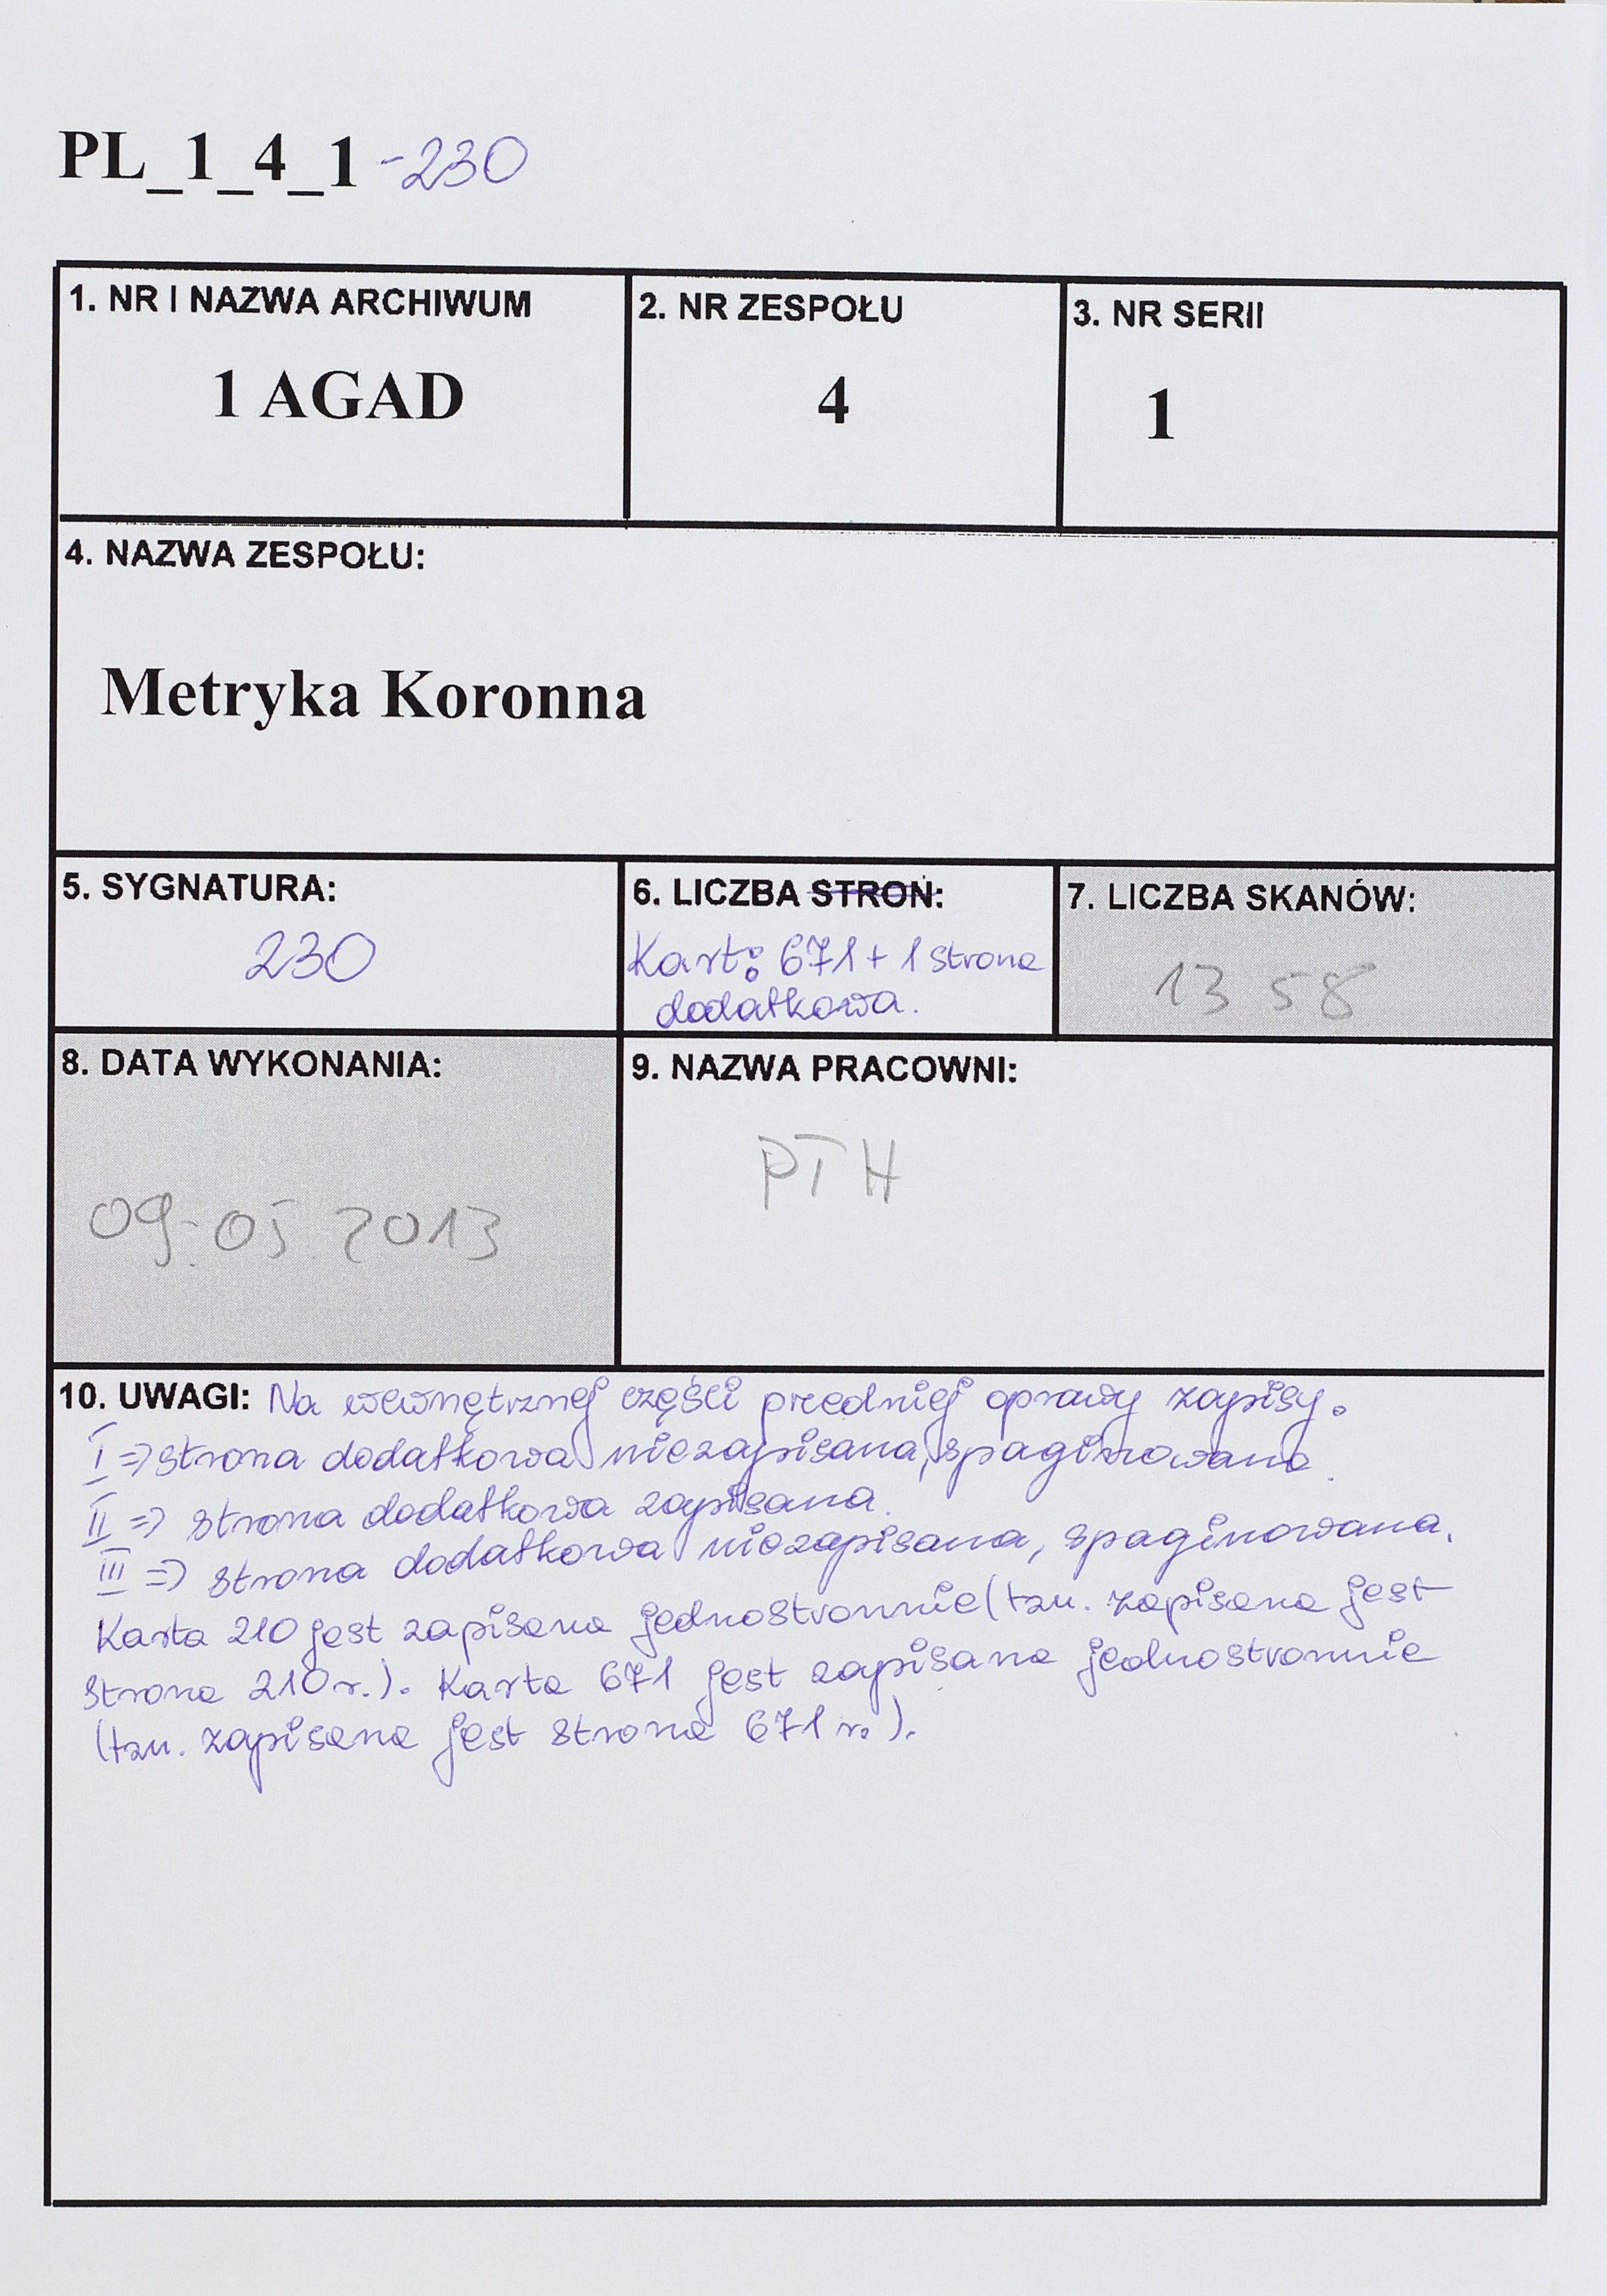 PL_1_4_1 -230
1. NR I NAZWA ARCHIWUM
1 AGAD
2. NR ZESPOŁU
4
3. NR SERII
1
4. NAZWA ZESPOŁU:
Metryka Koronna
5. SYGNATURA:
230
6. LICZBA STRON:
Kart: 671 + 1 strona
dodatkowa.
7. LICZBA SKANÓW:
13 58
8. DATA WYKONANIA:
09.05.2013
9. NAZWA PRACOWNI:
PTH
10. UWAGI: Na wewnętrznej części przedniej oprawy zapisy.
I => strona dodatkowa niezapisana, spaginowana.
II => strona dodatkowa zapisana.
III => strona dodatkowa niezapisana, spaginowana.
Karta 210 jest zapisana jednostronnie (tzn. zapisana jest
strona 210 r.). Karta 671 jest zapisana jednostronnie
(tzn. zapisana jest strona 671 r.).